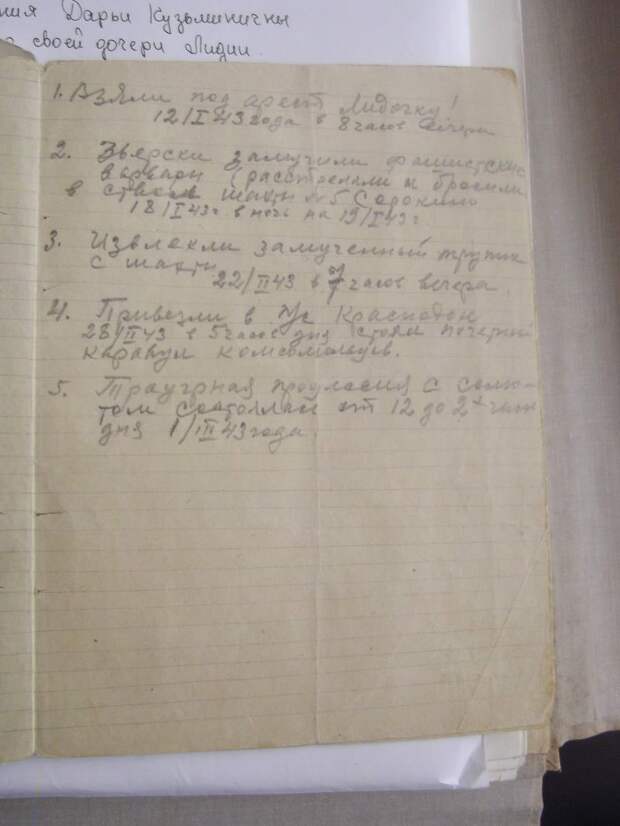 ния Дарьи Кузьминичны
своей дочери Лидии.
1. Взяли под арест Лидочку!
12/I 43 года в 8 часов вечера
2. Зверски замучили фашистские
варвары расстреляли и бросили
в ствол шахты №5 Сорокино
18/I 43 г в ночь на 19/I 43 г
3. Извлекли замученный трупик
с шахты
22/II 43 в 7 часов вечера
4. Привезли в Краснодон
28/II 43 в 5 часов дня стоял почетный
караул комсомольцев.
5. Траурная процессия с салю-
том состоялась от 12 до 2х час
дня 1/III 43 года